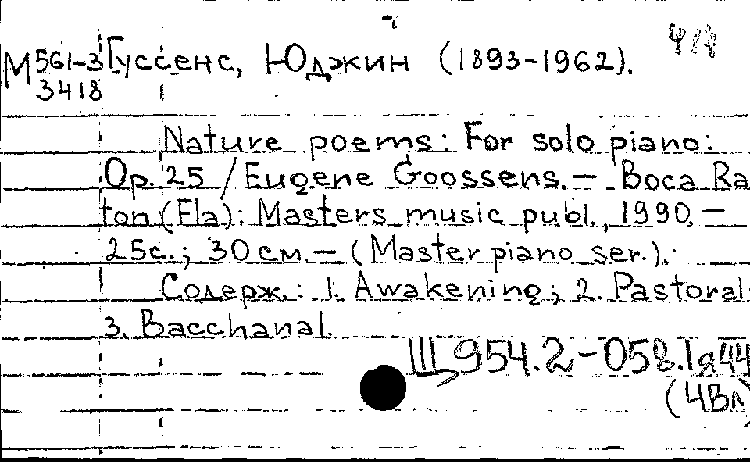 М 561-3 Гуссенс, Юджин (1893-1962).
3418
Nature poems: For solo piano:
Op. 25 / Eugene Goossens. — Boca Ra-
ton (Fla): Masters music publ., 1990. —
25с.; 30 см. — (Master piano ser.).
Содерж.: 1. Awakening; 2. Pastoral;
3. Bacchanal.
Щ954.2-058.1я44
(4Вл)